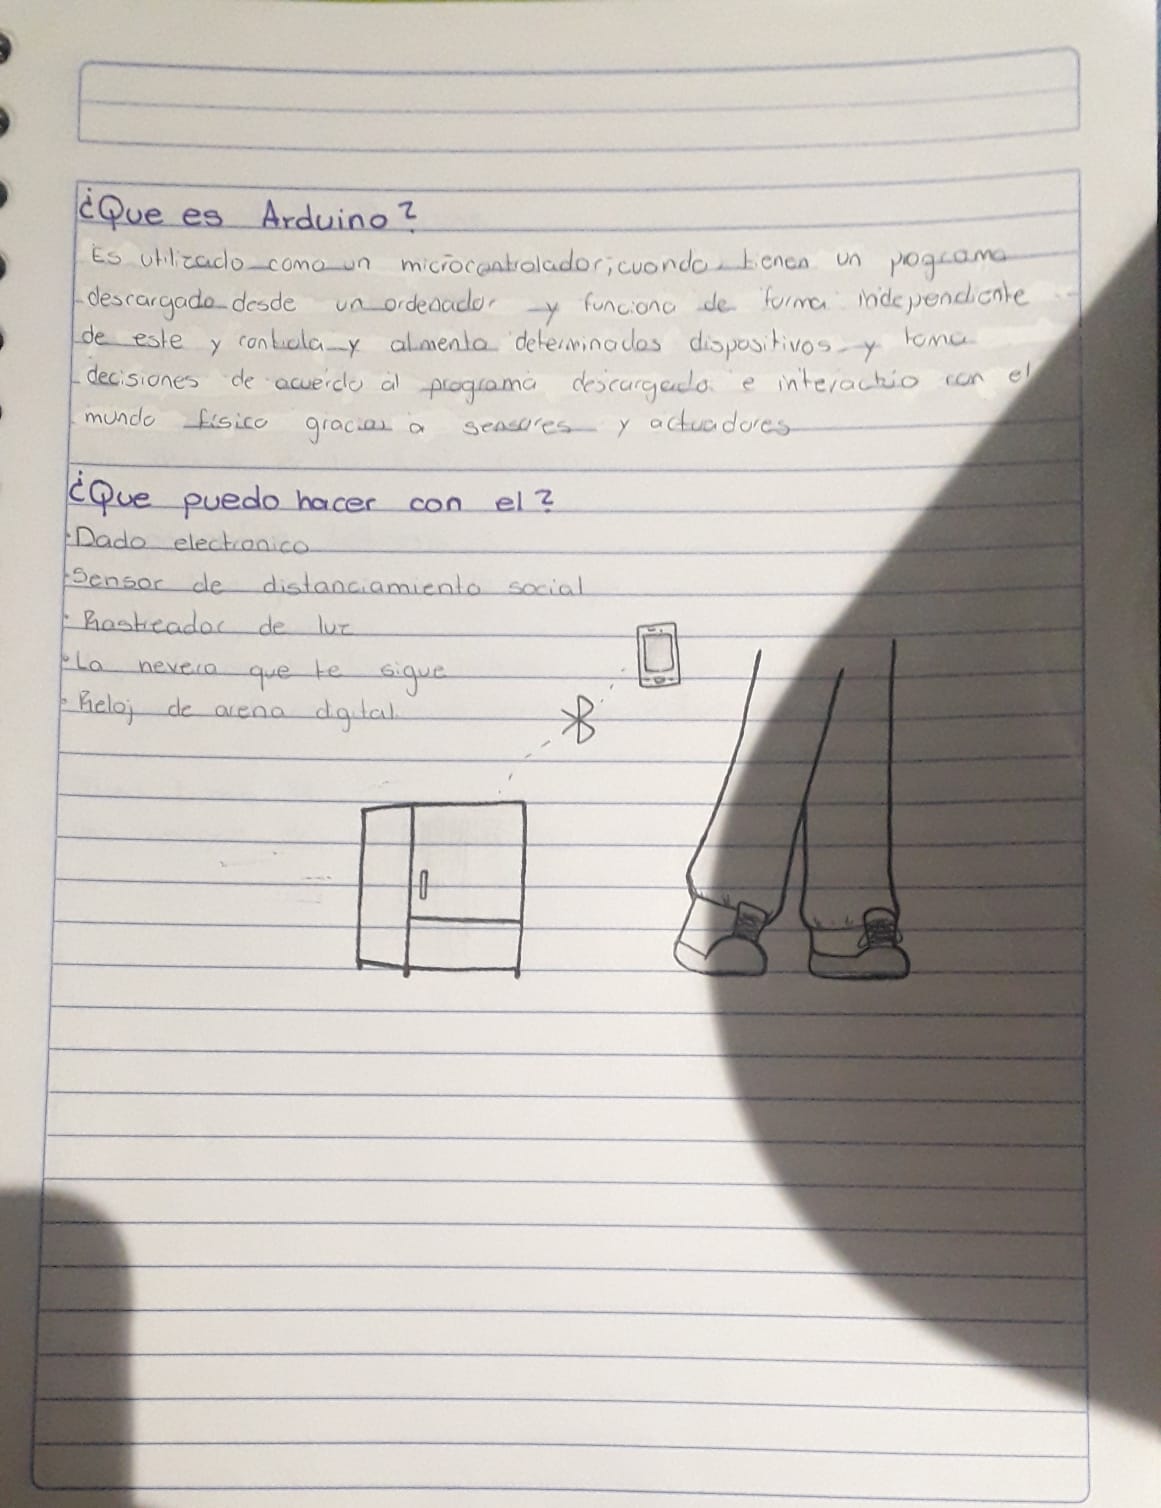 ¿Que es Arduino?
Es utilizado como un microcontrolador, cuando tienen un pograma
descargado desde un ordenador y funciona de forma independiente
de este y controla y almenta determinados dispositivos y toma
decisiones de acuerdo al programa descargado e interactuo con el
mundo físico gracias a sensores y actuadores
¿Que puedo hacer con el?
·Dado electronico
·Sensor de distanciamiento social
·Rastreador de luz
·La nevera que te sigue
·Reloj de arena dgital